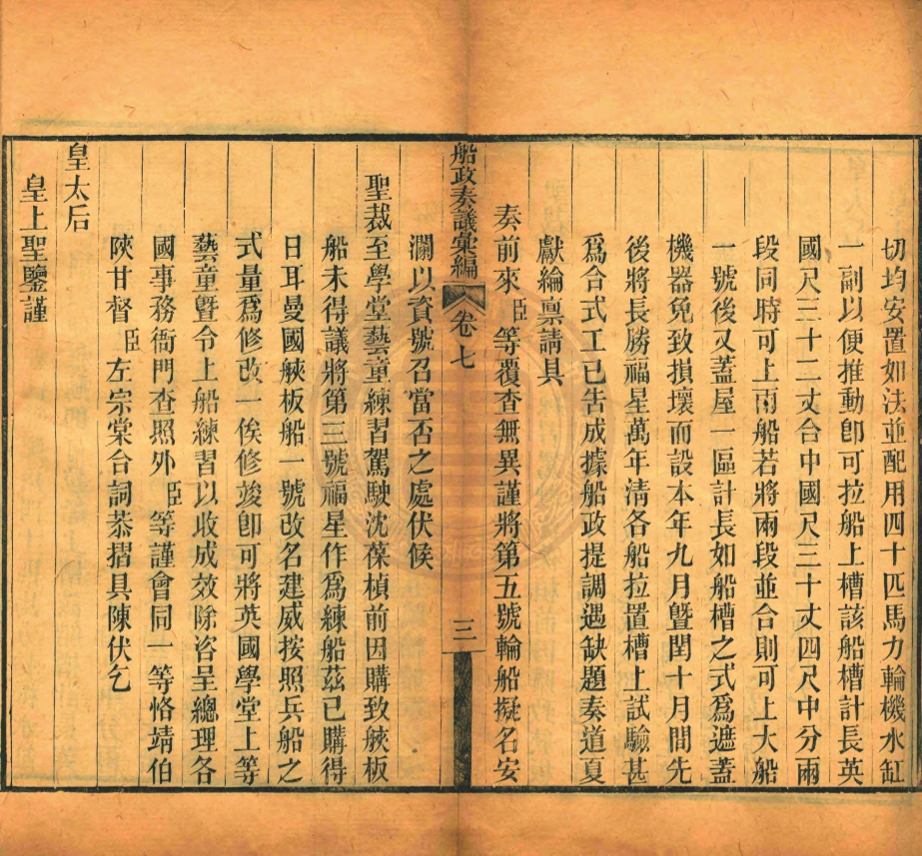 切均安置如法並配用四十匹馬力輪機水缸
一副以便推動卽可拉船上槽該船槽計長英
國尺三十二丈合中國尺三十丈四尺中分兩
段同時可上兩船若將兩段並合則可上大船
一號後又蓋屋一區計長如船槽之式爲遮蓋
機器免致損壞而設本年九月曁閏十月間先
後將長勝福星萬年淸各船拉置槽上試驗甚
爲合式工已告成據船政提調遇缺題奏道夏
獻綸稟請具
奏前來臣等覆查無異謹將第五號輪船擬名安
船政奏議彙編 卷七 三
瀾以資號召當否之處伏候
聖裁至學堂藝童練習駕駛沈葆楨前因購致舨板
船未得議將第三號福星作爲練船茲已購得
日耳曼國舨板船一號改名建威按照兵船之
式量爲修改一俟修竣卽可將英國學堂上等
藝童曁令上船練習以收成效除咨呈總理各
國事務衙門查照外臣等謹會同一等恪靖伯
陝甘督臣左宗棠合詞恭摺具陳伏乞
皇太后
皇上聖鑒謹